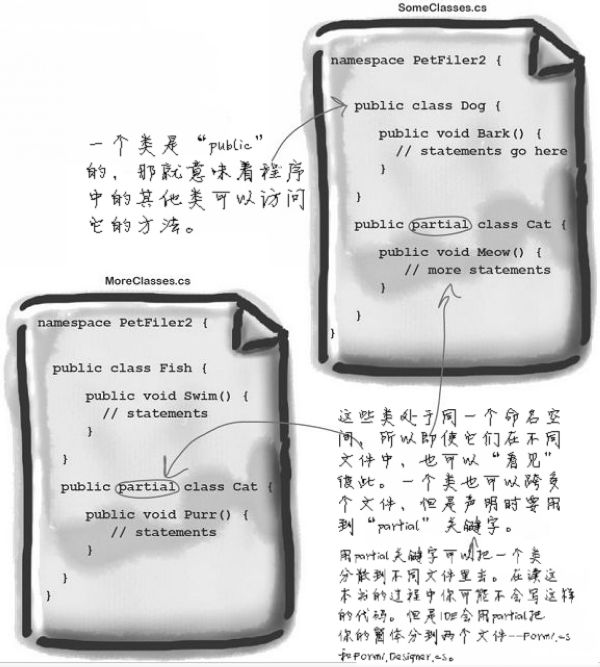 SomeClasses.cs
namespace PetFiler2 {
public class Dog {
public void Bark() {
// statements go here
}
}
public partial class Cat {
public void Meow() {
// more statements
}
}
}
一个类是“public”
的，那就意味着程序
中的其他类可以访问
它的方法。
MoreClasses.cs
namespace PetFiler2 {
public class Fish {
public void Swim() {
// statements
}
}
public partial class Cat {
public void Purr() {
// statements
}
}
}
这些类处于同一个命名空
间，所以即使它们在不同
文件中，也可以“看见”
彼此。一个类也可以跨多
个文件，但是声明时要用
到“partial”关键字。
用partial关键字可以把一个类
分散到不同文件里去。在读这
本书的过程中你可能不会写这样
的代码。但是IDE会用partial把
你的窗体分到两个文件--Form1.cs
和Form1.Designer.cs。